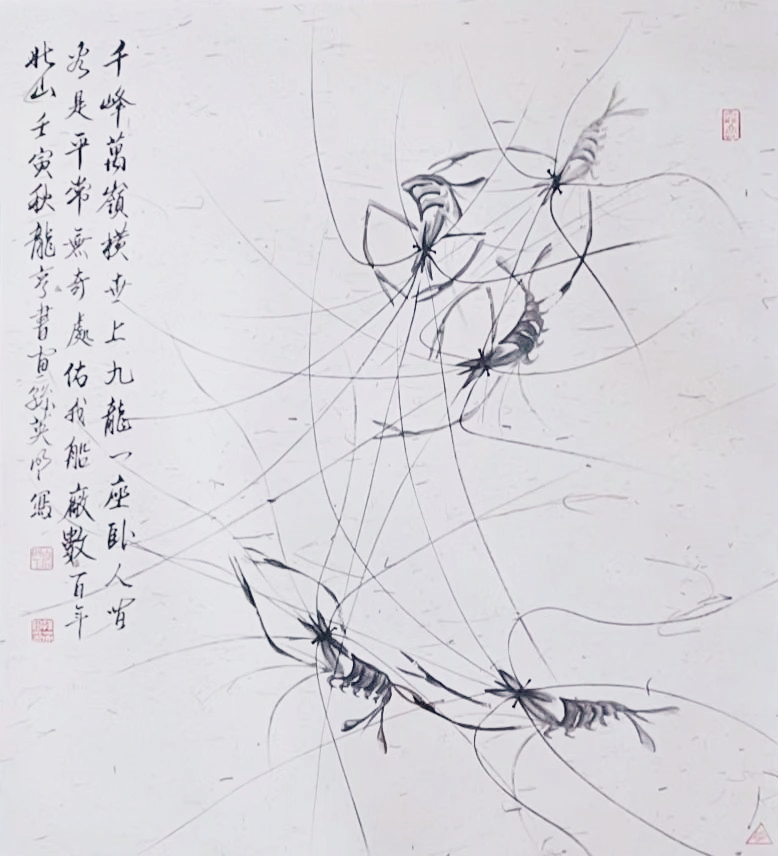 千峰萬嶺横世上九龍一座卧人間
是平常無奇處佑我船廠數百年
北山壬寅秋龍亭書孫英明寫